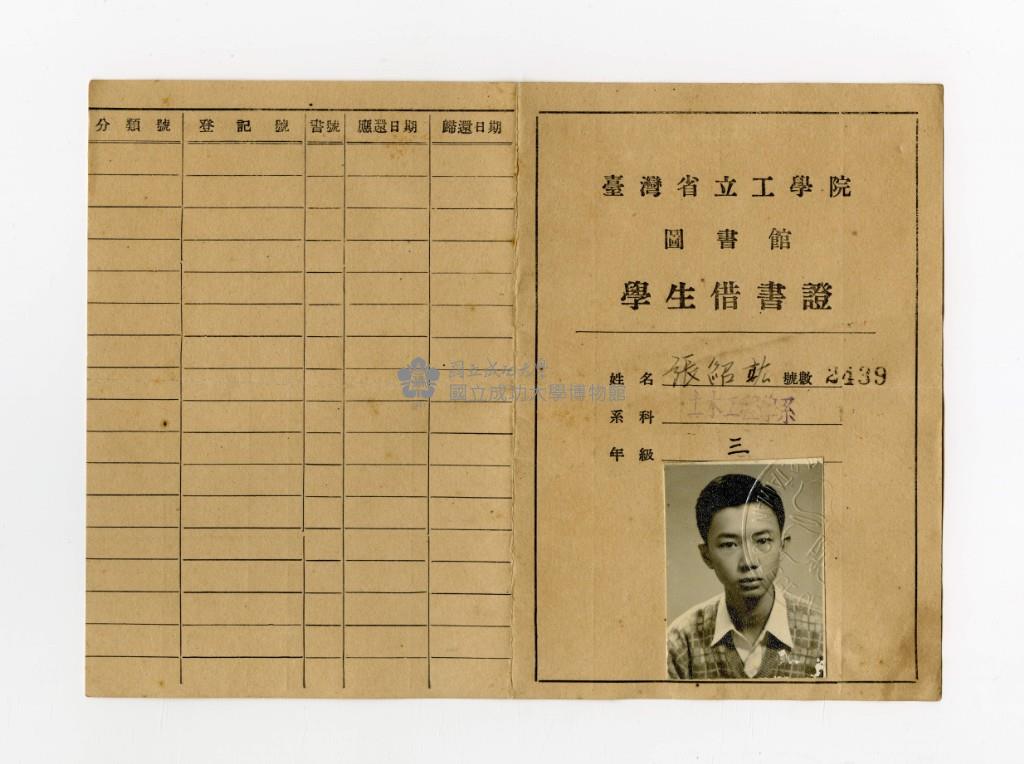 分類號 登記號 書號 應還日期 歸還日期
臺灣省立工學院
圖書館
學生借書證
姓名 張紹乾 號數 2439
系科 土木工程學系
年級 三
國立成功大學
國立成功大學博物館